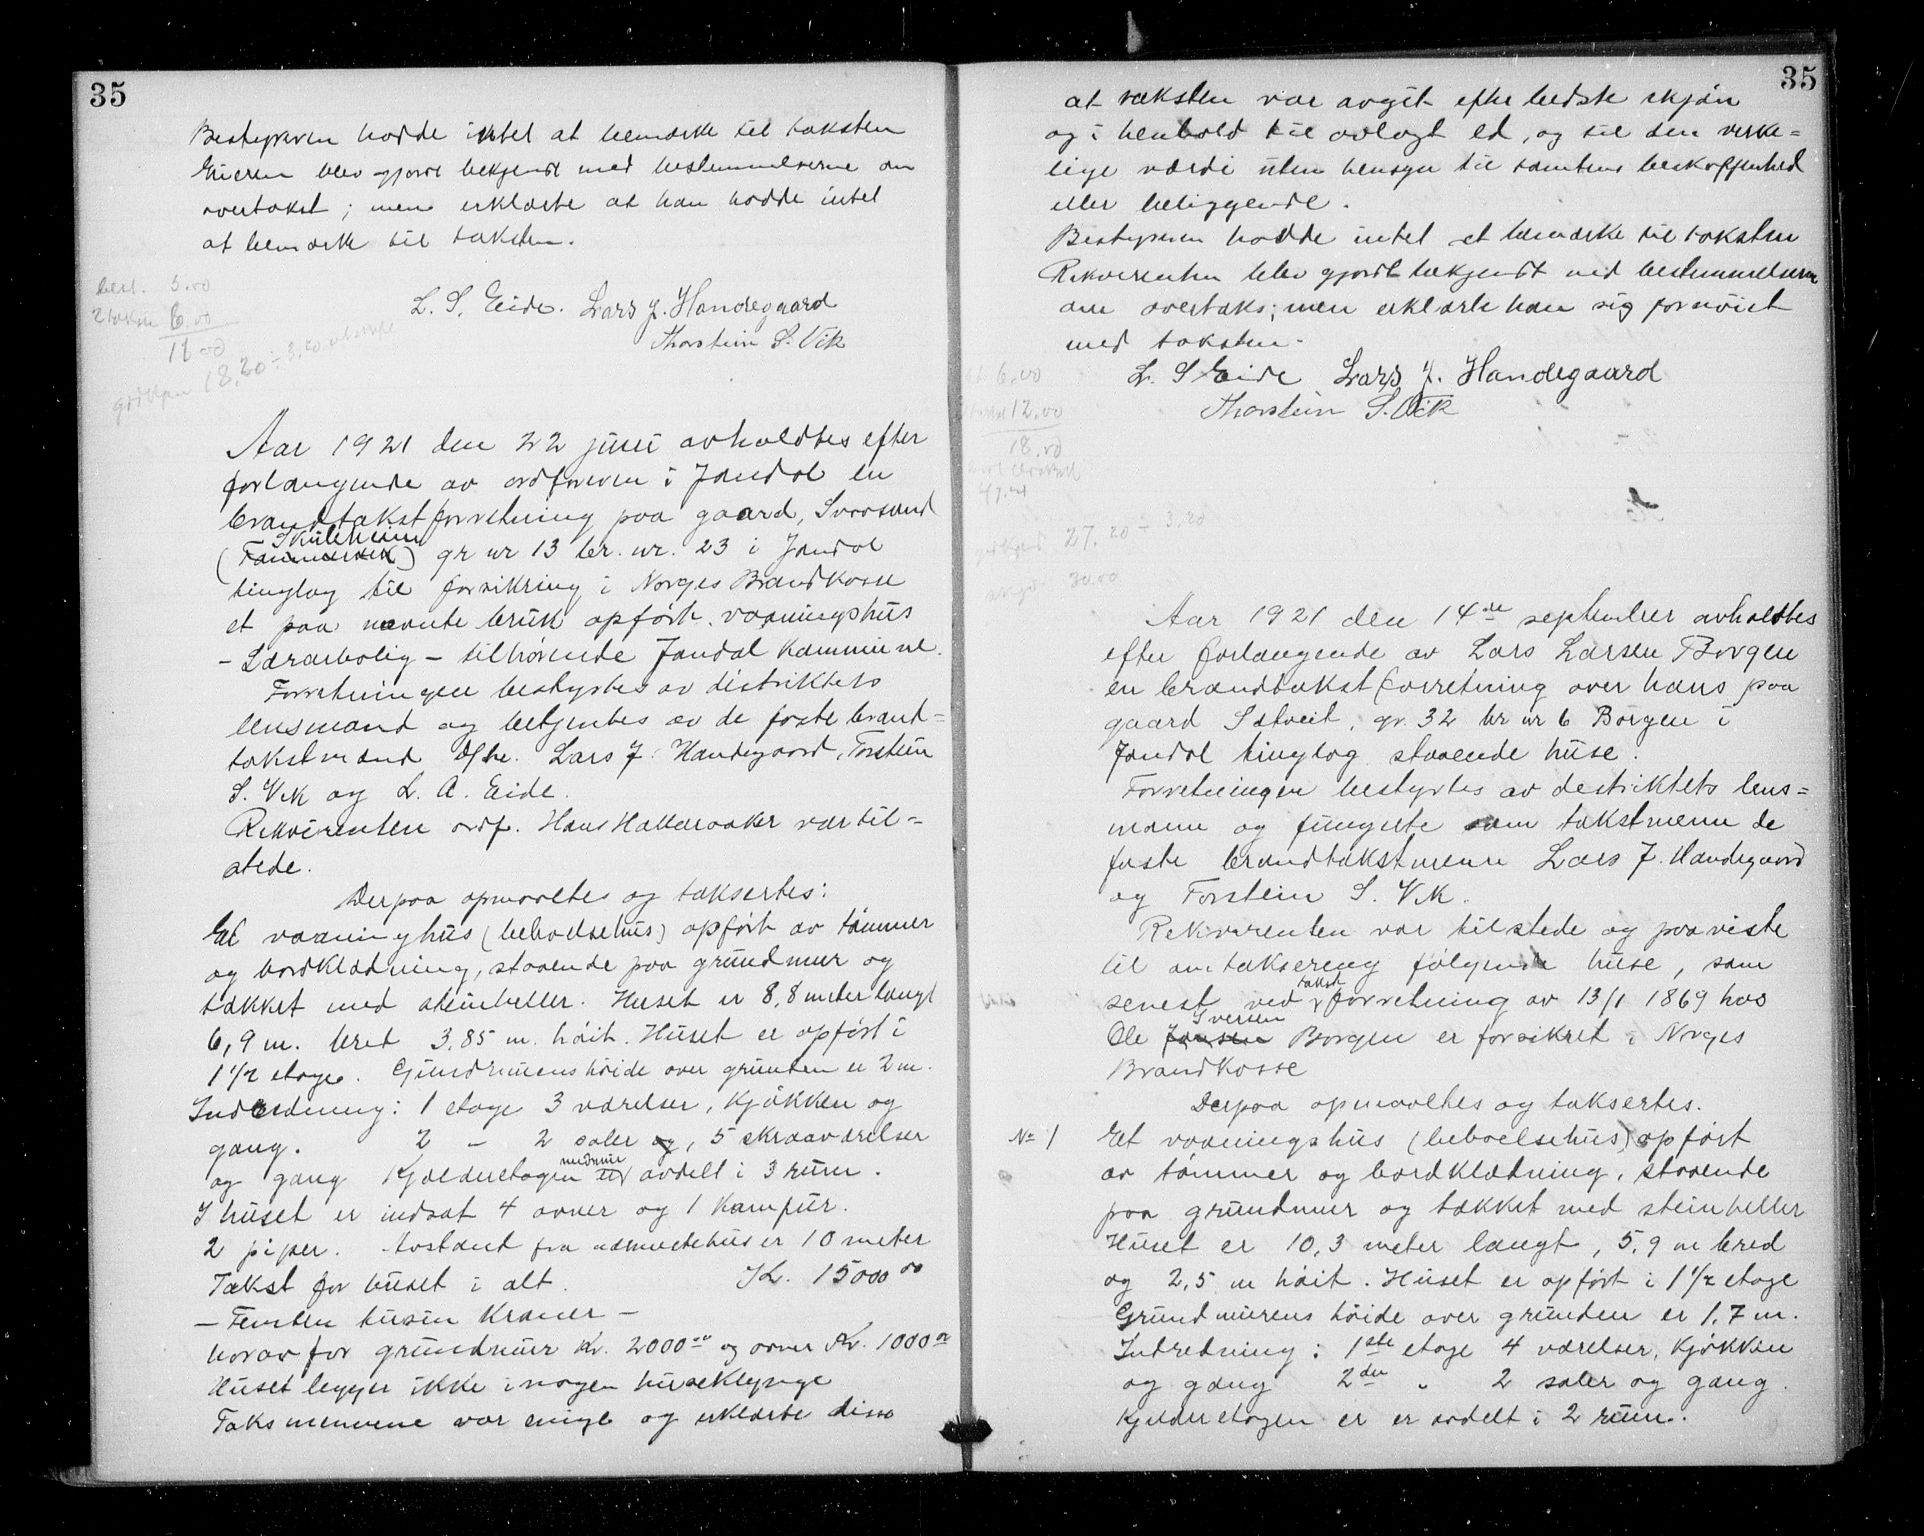 35
Bestyreren hadde intet at bemærke til taksten
Eieren blev gjort bekjendt med bestemmelserne om
overtakst; men erklærte at han hadde intet
at bemærke til taksten.
best. 5.00
2 takstm 6.00
11.00
godkjen 18,20 ÷ 3,20
L. S. Eide. Lars J. Handegaard
Thorstein S. Vik
Aar 1921 den 22 juni avholdtes efter
forlangende av ordføreren i Jondal en
brandtakstforretning paa gaard, Svaasand
Skuleheim
( ) gr nr 13 br. nr. 23 i Jondal
tinglag til forsikring i Norges Brandkasse
et paa nævnte bruk opført vaaningshus
- Lærarbolig - tilhørende Jondal Kommune.
Forretningen bestyrtes av distriktets
lensmand og betjentes av de faste brand=
takstmænd d'hr. Lars J. Handegaard, Torstein
S. Vik og L. A. Eide.
Rekvirenten ordf. Hans Hallaraaker var til=
stede.
Derpaa opmaaltes og taksertes:
Et vaaninghus (beboelsehus) opført av tømmer
og bordklædning, staaende paa grundmur og
tækket med steinheller. Huset er 8,8 meter langt
6,9 m. bred 3,85 m. høit. Huset er opført i
1 1/2 etage. Gundmurens høide over grunten er 2 m.
Indredning: 1 etage 3 værelser, kjøkken og
gang. 2 - 2 saler og, 5 skraaværelser
nedmur
og gang Kjælderetagen er avdelt i 3 rum.
I huset er indsat 4 ovner og 1 Kamfur.
2 piper. Avstand fra nærmestehus er 10 meter
Takst for huset i alt. Kr. 15000 00
- Femten tusen Kroner -
horav for grundmur Kr. 2000 00 og ovner Kr. 1000 00
Huset legger ikke i nogen huseklynge
Taksmennene var enige og erklærte disse
35
at taksten var avgit efter bedste skjøn
og i henhold til avlagt ed, og til den verke=
lige værdi uten hensyn til tomtens beskaffenhed
eller beliggende.
Bestyreren hadde intet at bemærke til taksten
Rekvirenten blev gjordt bekjendt med bestemmelserne
om overtaks; men erklærte han sig fornøiet
med taksten.
L. S Eide Lars J. Handegaard
Thorstein S. Vik
6.00
12.00
18.00
27.20 ÷ 3,20
30.00
Aar 1921 den 14de september avholdtes
efter forlangende av Lars Larsen Borgen
en brandtakstforretning over hans paa
gaard Sætveit, gr. 32 br nr 6 Borgen i
Jondal tinglag staaende huse.
Forretningen bestyrtes av destriktets lens=
mann og fungerte som takstmenn de
faste brandtakstmenn Lars J. Handegaard
og Torstein S. Vik.
Rekvirenten var tilstede og paaviste
til omtaksering følgende huse, som
takst
senest ved forretning av 13/1 1869 hos
Iversen
Ole Jansen Borgen er forsikret i Norges
Brandkasse
Derpaa opmaaltes og taksertes.
No 1 Et vaaningshus (beboelsehus) opført
av tømmer og bordklædning, staaende
paa grundmur og tækket med steinheller
Huset er 10,3 meter langt, 5,9 m bred
og 2,5 m høit. Huset er opført i 1 1/2 etage
Grundmurens høide over grunden er 1,7 m.
Indredning: 1ste etage 4 værelser, kjøkken
og gang 2den " 2 saler og gang.
Kjelderetagen er er avdelt i 2 rum.